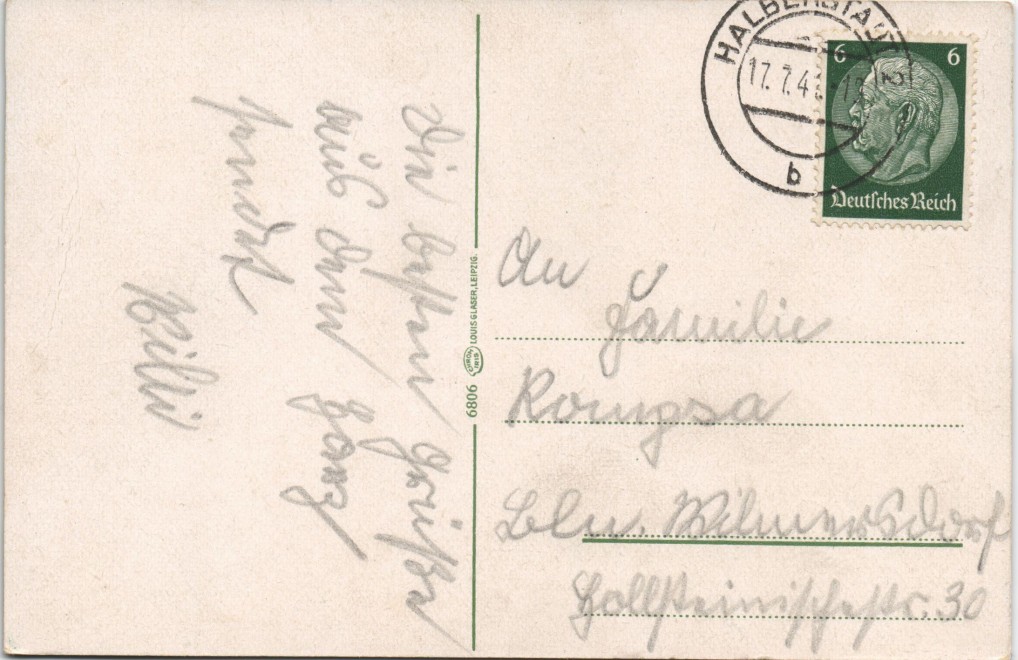 Die besten Grüße
aus dem Harz
sendet
Willi
6806
LOUIS GLASER, LEIPZIG.
HALBERSTADT
17.7.4
b
6 6
Deutsches Reich
An
Familie
Rompsa
Bln. Wilmersdorf
Holsteinischestr. 30